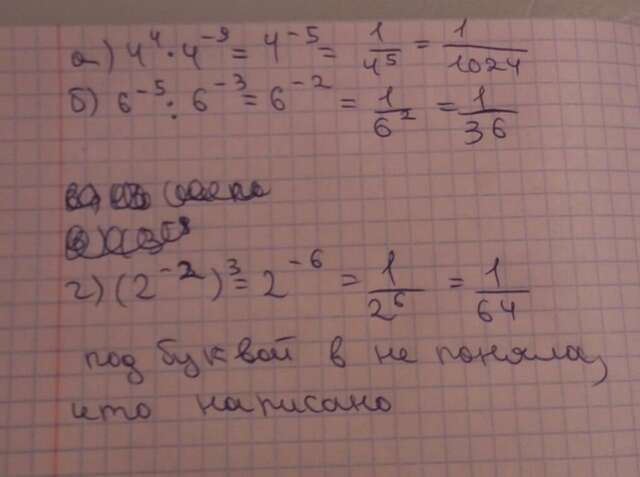 а) 4⁴ · 4⁻⁹ = 4⁻⁵ = 1/4⁵ = 1/1024
б) 6⁻⁵ : 6⁻³ = 6⁻² = 1/6² = 1/36
г) (2⁻²)³ = 2⁻⁶ = 1/2⁶ = 1/64
под буквой в не поняла,
что написано